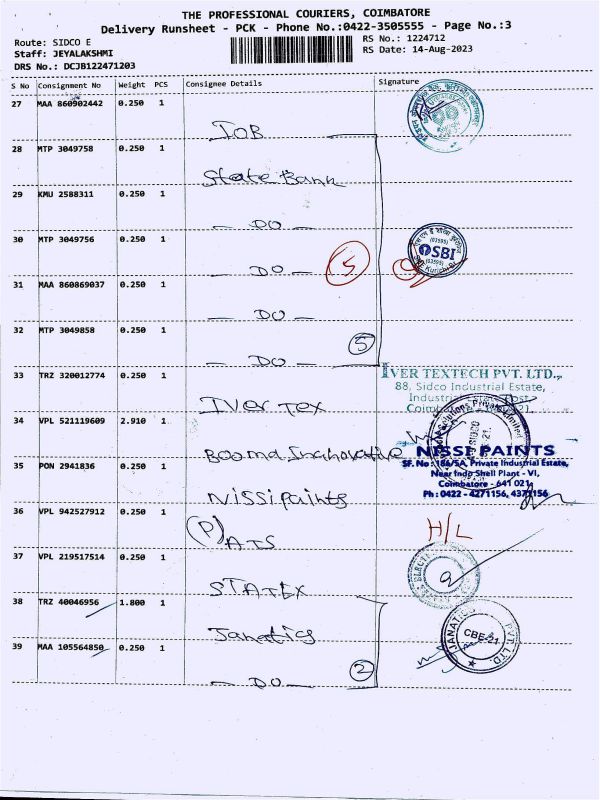 THE PROFESSIONAL COURIERS, COIMBATORE
Delivery Runsheet - PCK - Phone No.:0422-3505555 - Page No.:3
Route: SIDCO E
RS No.: 1224712
Staff: JEYALAKSHMI
RS Date: 14-Aug-2023
DRS No.: DCJB122471203
S No Consignment No Weight PCS Consignee Details Signature
27 MAA 860902442 0.250 1
IOB
28 MTP 3049758 0.250 1
State Bank
29 KMU 2588311 0.250 1
— DO —
30 MTP 3049756 0.250 1
— DO — 5
SBI
(03595)
31 MAA 860869037 0.250 1
— DO —
32 MTP 3049858 0.250 1
— DO — 5
33 TRZ 320012774 0.250 1
IVER TEXTECH PVT. LTD.,
88, Sidco Industrial Estate,
Industrial Estate Post
Iver Tex
34 VPL 521119609 2.910 1
Booma Innhovative
NISSI PAINTS
SF. No : 186/5A, Private Industrial Estate,
Near Indo Shell Plant - VI,
Coimbatore - 641 021
Ph : 0422 - 4271156, 4371156
35 PON 2941836 0.250 1
Nissi paints
36 VPL 942527912 0.250 1
(P) ATS H/L
37 VPL 219517514 0.250 1
STATEX
38 TRZ 40046956 1.800 1
Janatics
JANATICS PVT. LTD.
CBE-21
39 MAA 105564850 0.250 1
— DO — 2